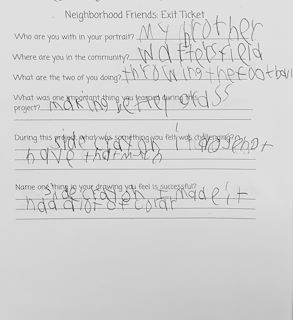 Neighborhood Friends: Exit Ticket
Who are you with in your portrait? My brother
Where are you in the community? Wattersfield
What are the two of you doing? throwingthefootball
What was one important thing you learned during this
project? making
During this project, what was something you felt was challenging?
side crayon it dosenot
have
Name one thing in your drawing you feel is successful?
side crayon I made it
had alotof colar